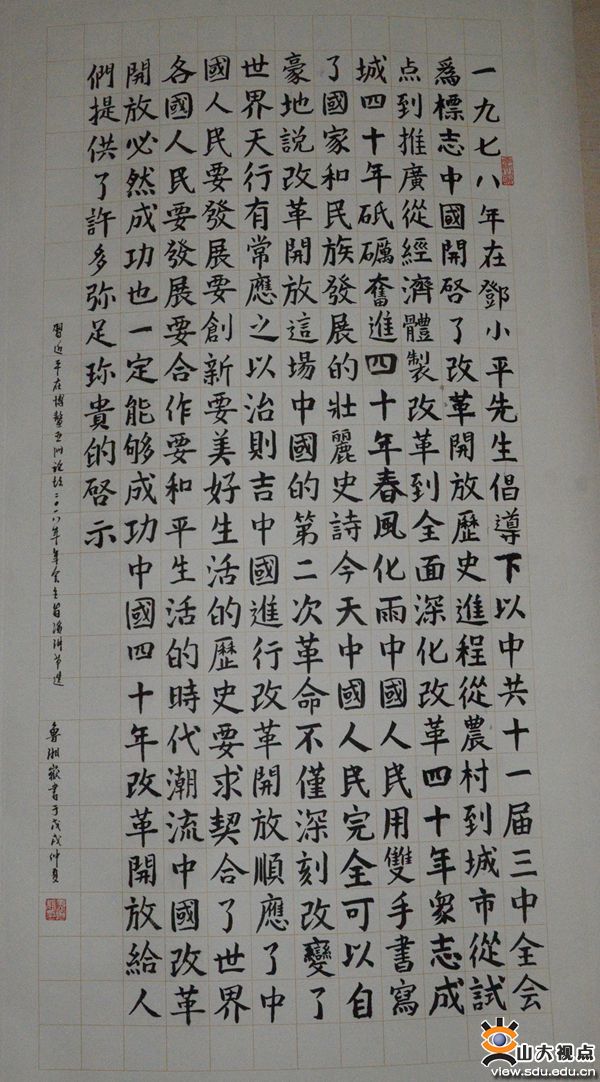 一九七八年在鄧小平先生倡導下以中共十一届三中全会
爲標志中國開啓了改革開放歷史進程從農村到城市從試
点到推廣從經濟體製改革到全面深化改革四十年衆志成
城四十年砥礪奮進四十年春風化雨中國人民用雙手書寫
了國家和民族發展的壯麗史詩今天中國人民完全可以自
豪地説改革開放這場中國的第二次革命不僅深刻改變了
世界天行有常應之以治則吉中國進行改革開放順應了中
國人民要發展要創新要美好生活的歷史要求契合了世界
各國人民要發展要合作要和平生活的時代潮流中國改革
開放必然成功也一定能够成功中國四十年改革開放給人
們提供了許多弥足珍貴的啓示
習近平在博鰲亞洲論壇二〇一八年年会主旨演講節選 魯湘嶽書于戊戌仲夏
山大视点
view.sdu.edu.cn